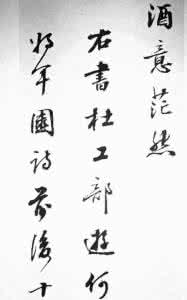 酒意茫然
右書杜工部遊何
將軍園詩前後十